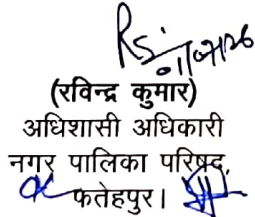 (रविन्द्र कुमार)
अधिशासी अधिकारी
नगर पालिका परिषद,
फतेहपुर।